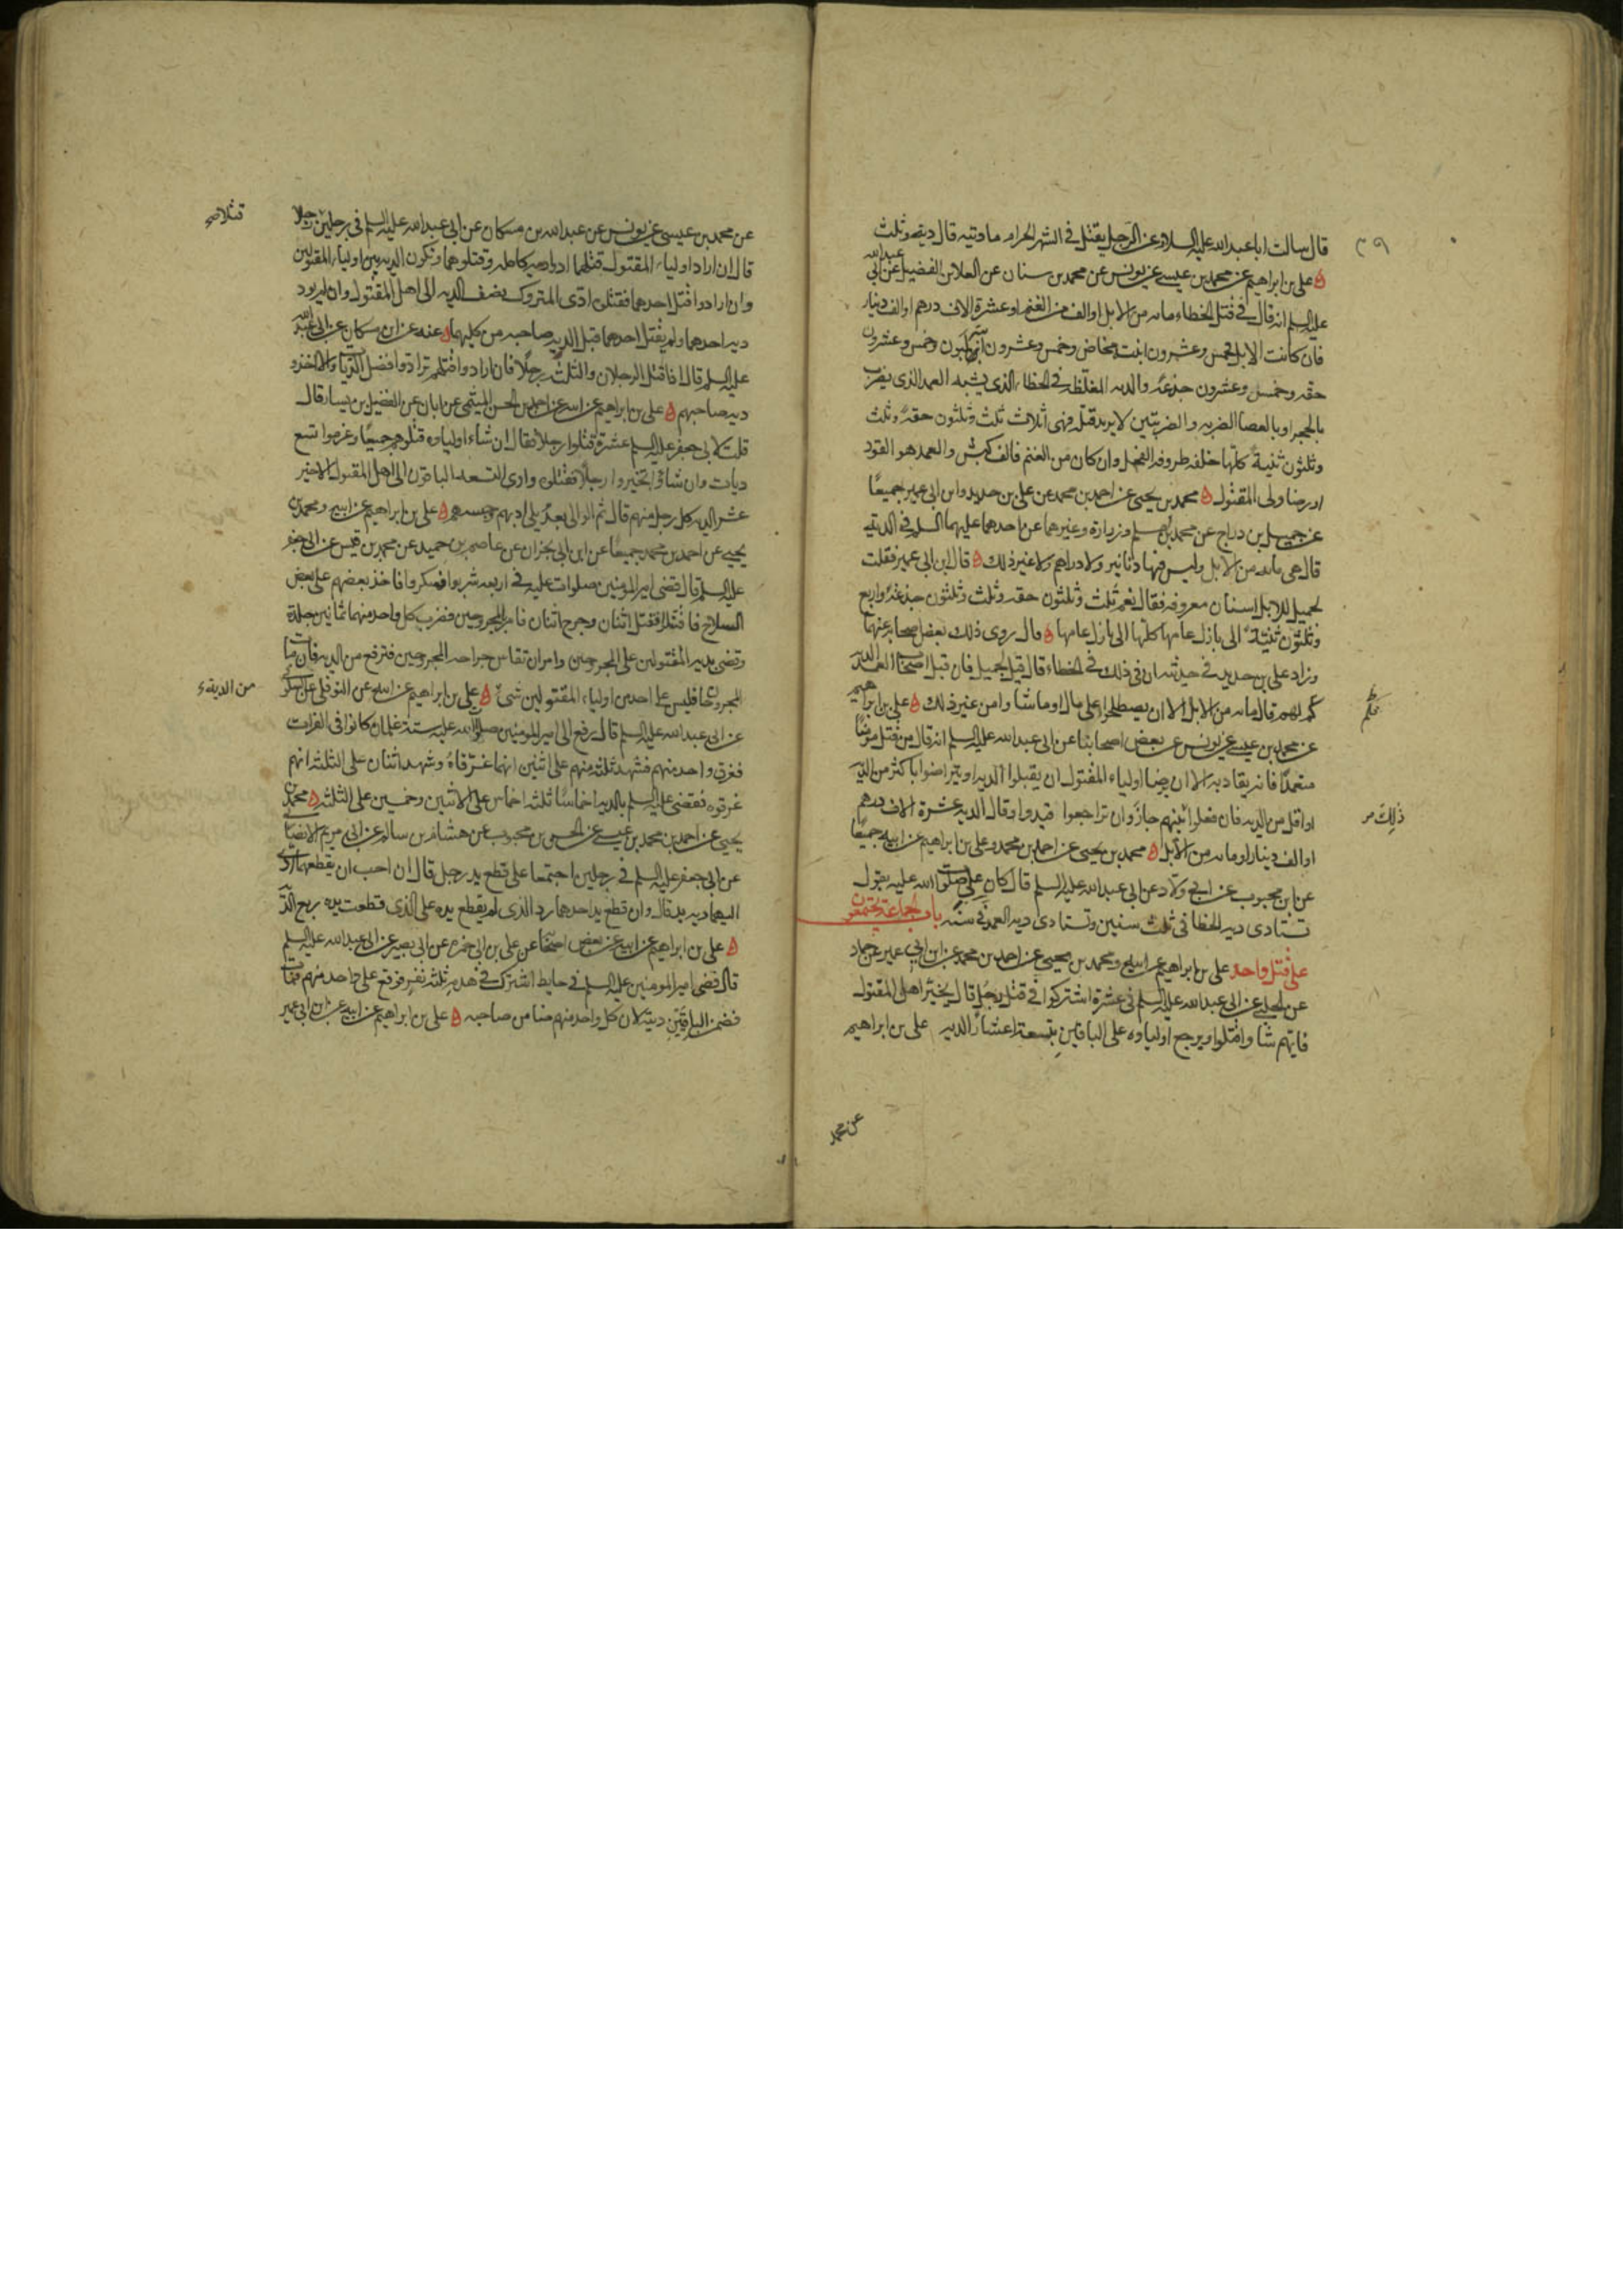 ٣٩
قال سالت ابا عبد الله عليه السلام عن الرجل يقتل في الشهر الحرام ما ديته قال دية وثلث
علي بن ابراهيم عن محمد بن عيسى عن يونس عن محمد بن سنان عن العلا بن الفضيل عن ابي عبد الله
عليه السلم انه قال في قتل الخطاء مايه من الابل او الف من الغنم او عشرة الاف درهم او الف دينار
فان كانت الابل فخمس وعشرون ابنت مخاض وخمس وعشرون ابنة لبون وخمس وعشرون
حقه وخمس وعشرون جذعة والديه المغلظه في الخطاء الذي يشبه العمد الذي يضرب
بالحجر او بالعصا الضربه والضربتين لا يريد قتله فهي اثلاث ثلث وثلثون حقة وثلث
وثلثون ثنية كلها خلفه طروقة الفحل وان كان من الغنم فالف كبش والعمد هو القود
او رضا ولي المقتول محمد بن يحيى عن احمد بن محمد عن علي بن حديد وابن ابي عمير جميعا
عن جميل بن دراج عن محمد بن مسلم وزرارة وغيرهما عن احدهما عليهما السلم في الدية
قال هي مايه من الابل وليس فيها دنانير ولا دراهم ولا غير ذلك قال ابن ابي عمير فقلت
لجميل للابل اسنان معروفه فقال نعم ثلث وثلثون حقه وثلث وثلثون جذعة واربع
وثلثون ثنية الى بازل عامها كلها الى بازل عامها قال روى ذلك بعض اصحابه عنهما
وزاد علي بن حديد في حديثه ان في ذلك في الخطاء قال قيل لجميل فان قبل اصحاب العمد الديه
كم لهم قال مايه من الابل الا ان يصطلحوا على مال او ما شاوا من غير ذلك علي بن ابراهيم
عن محمد بن عيسى عن يونس عن بعض اصحابنا عن ابي عبد الله عليه السلم انه قال من قتل مومنا
متعمدا فانه يقاد به الا ان يرضا اولياء المقتول ان يقبلوا الديه او يتراضوا باكثر من الديه
او اقل من الديه فان فعلوا بينهم جاز وان تراجعوا قيدوا وقال الديه عشرة الاف درهم
ذلك
او الف دينار او مايه من الابل محمد بن يحيى عن احمد بن محمد وعلي بن ابراهيم عن ابيه جميعا
عن ابن محبوب عن ابي ولاد عن ابي عبد الله عليه السلم قال كان علي صلوات الله عليه يقول
تستادى دية الخطا في ثلث سنين وتستادى دية العمد في سنه باب الجماعة يجتمعون
على قتل واحد علي بن ابراهيم عن ابيه ومحمد بن يحيى عن احمد بن محمد عن ابن ابي عمير عن حماد
عن الحلبي عن ابي عبد الله عليه السلم في عشرة اشتركوا في قتل رجل قال يخير اهل المقتول
فايهم شاوا قتلوا ويرجع اولياوه على الباقين بتسعة اعشار الديه علي بن ابراهيم
عن محمد
عن محمد بن عيسى عن يونس عن عبد الله بن مسكان عن ابي عبد الله عليه السلم في رجلين رجلا
قتلا صح
قال ان اراد اولياء المقتول قتلهما ادوا ديه كامله وقتلوهما وتكون الديه بين اولياء المقتولين
وان ارادوا قتل احدهما فقتلوه ادى المتروك نصف الديه الى اهل المقتول وان لم يود
ديه احدهما ولم يقتل احدهما قبل الديه صاحبه من كليهما وعنه عن ابن مسكان عن ابي عبد الله
عليه السلم قال اذا قتل الرجلان والثلث رجلا فان ارادوا قتلهم ترادوا فضل الديات والا اخذوا
ديه صاحبهم علي بن ابراهيم عن ابيه عن احمد بن الحسن الميثمي عن ابان عن الفضيل بن يسار قال
قلت لابي جعفر عليه السلم عشرة قتلوا رجلا فقال ان شاء اولياوه قتلوهم جميعا وغرموا تسع
ديات وان شاؤا تخيروا رجلا فقتلوه وادى التسعه الباقون الى اهل المقتول الاخير
عشر الديه كل رجل منهم قال ثم الوالي بعد يلي ادبهم وحبسهم علي بن ابراهيم عن ابيه ومحمد بن
يحيى عن احمد بن محمد جميعا عن ابن ابي نجران عن عاصم بن حميد عن محمد بن قيس عن ابي جعفر
عليه السلم قال قضى امير المومنين صلوات عليه في اربعه شربوا فسكروا فاخذ بعضهم على بعض
السلاح فاقتتلوا فقتل اثنان وجرح اثنان فامر المجروحين فضرب كل واحد منهما ثمانين جلدة
وقضى بديه المقتولين على المجروحين وامر ان تقاس جراحه المجروحين فترفع من الديه فان مات
المجروحان فليس على احد من اولياء المقتولين شئ علي بن ابراهيم عن ابيه عن النوفلي عن السكوني
من الدية
عن ابي عبد الله عليه السلم قال رفع الى امير المومنين صلوات الله عليه ستة غلمان كانوا في الفرات
فغرق واحد منهم فشهد ثلثه منهم على اثنين انهما غرقاه وشهد اثنان على الثلثه انهم
غرقوه فقضى عليه السلم بالديه اخماسا ثلثه اخماس على الاثنين وخمسين على الثلثه محمد بن
يحيى عن احمد بن محمد بن عيسى عن الحسن بن محبوب عن هشام بن سالم عن ابي مريم الانصاري
عن ابي جعفر عليه السلم في رجلين اجتمعا على قطع يد رجل قال ان احب ان يقطعهما ادى
اليهما ديه يد قال وان قطع يد احدهما رد الذي لم يقطع يده على الذي قطعت يده ربع الديه
علي بن ابراهيم عن ابيه عن بعض اصحابه عن علي بن ابي حمزه عن ابي بصير عن ابي عبد الله عليه السلم
قال قضى امير المومنين عليه السلم في حايط اشترك في هدمه ثلثه نفر فوقع على واحد منهم فمات
فضمن الباقيين ديته لان كل واحد منهم ضامن صاحبه علي بن ابراهيم عن ابيه عن ابن ابي عمير